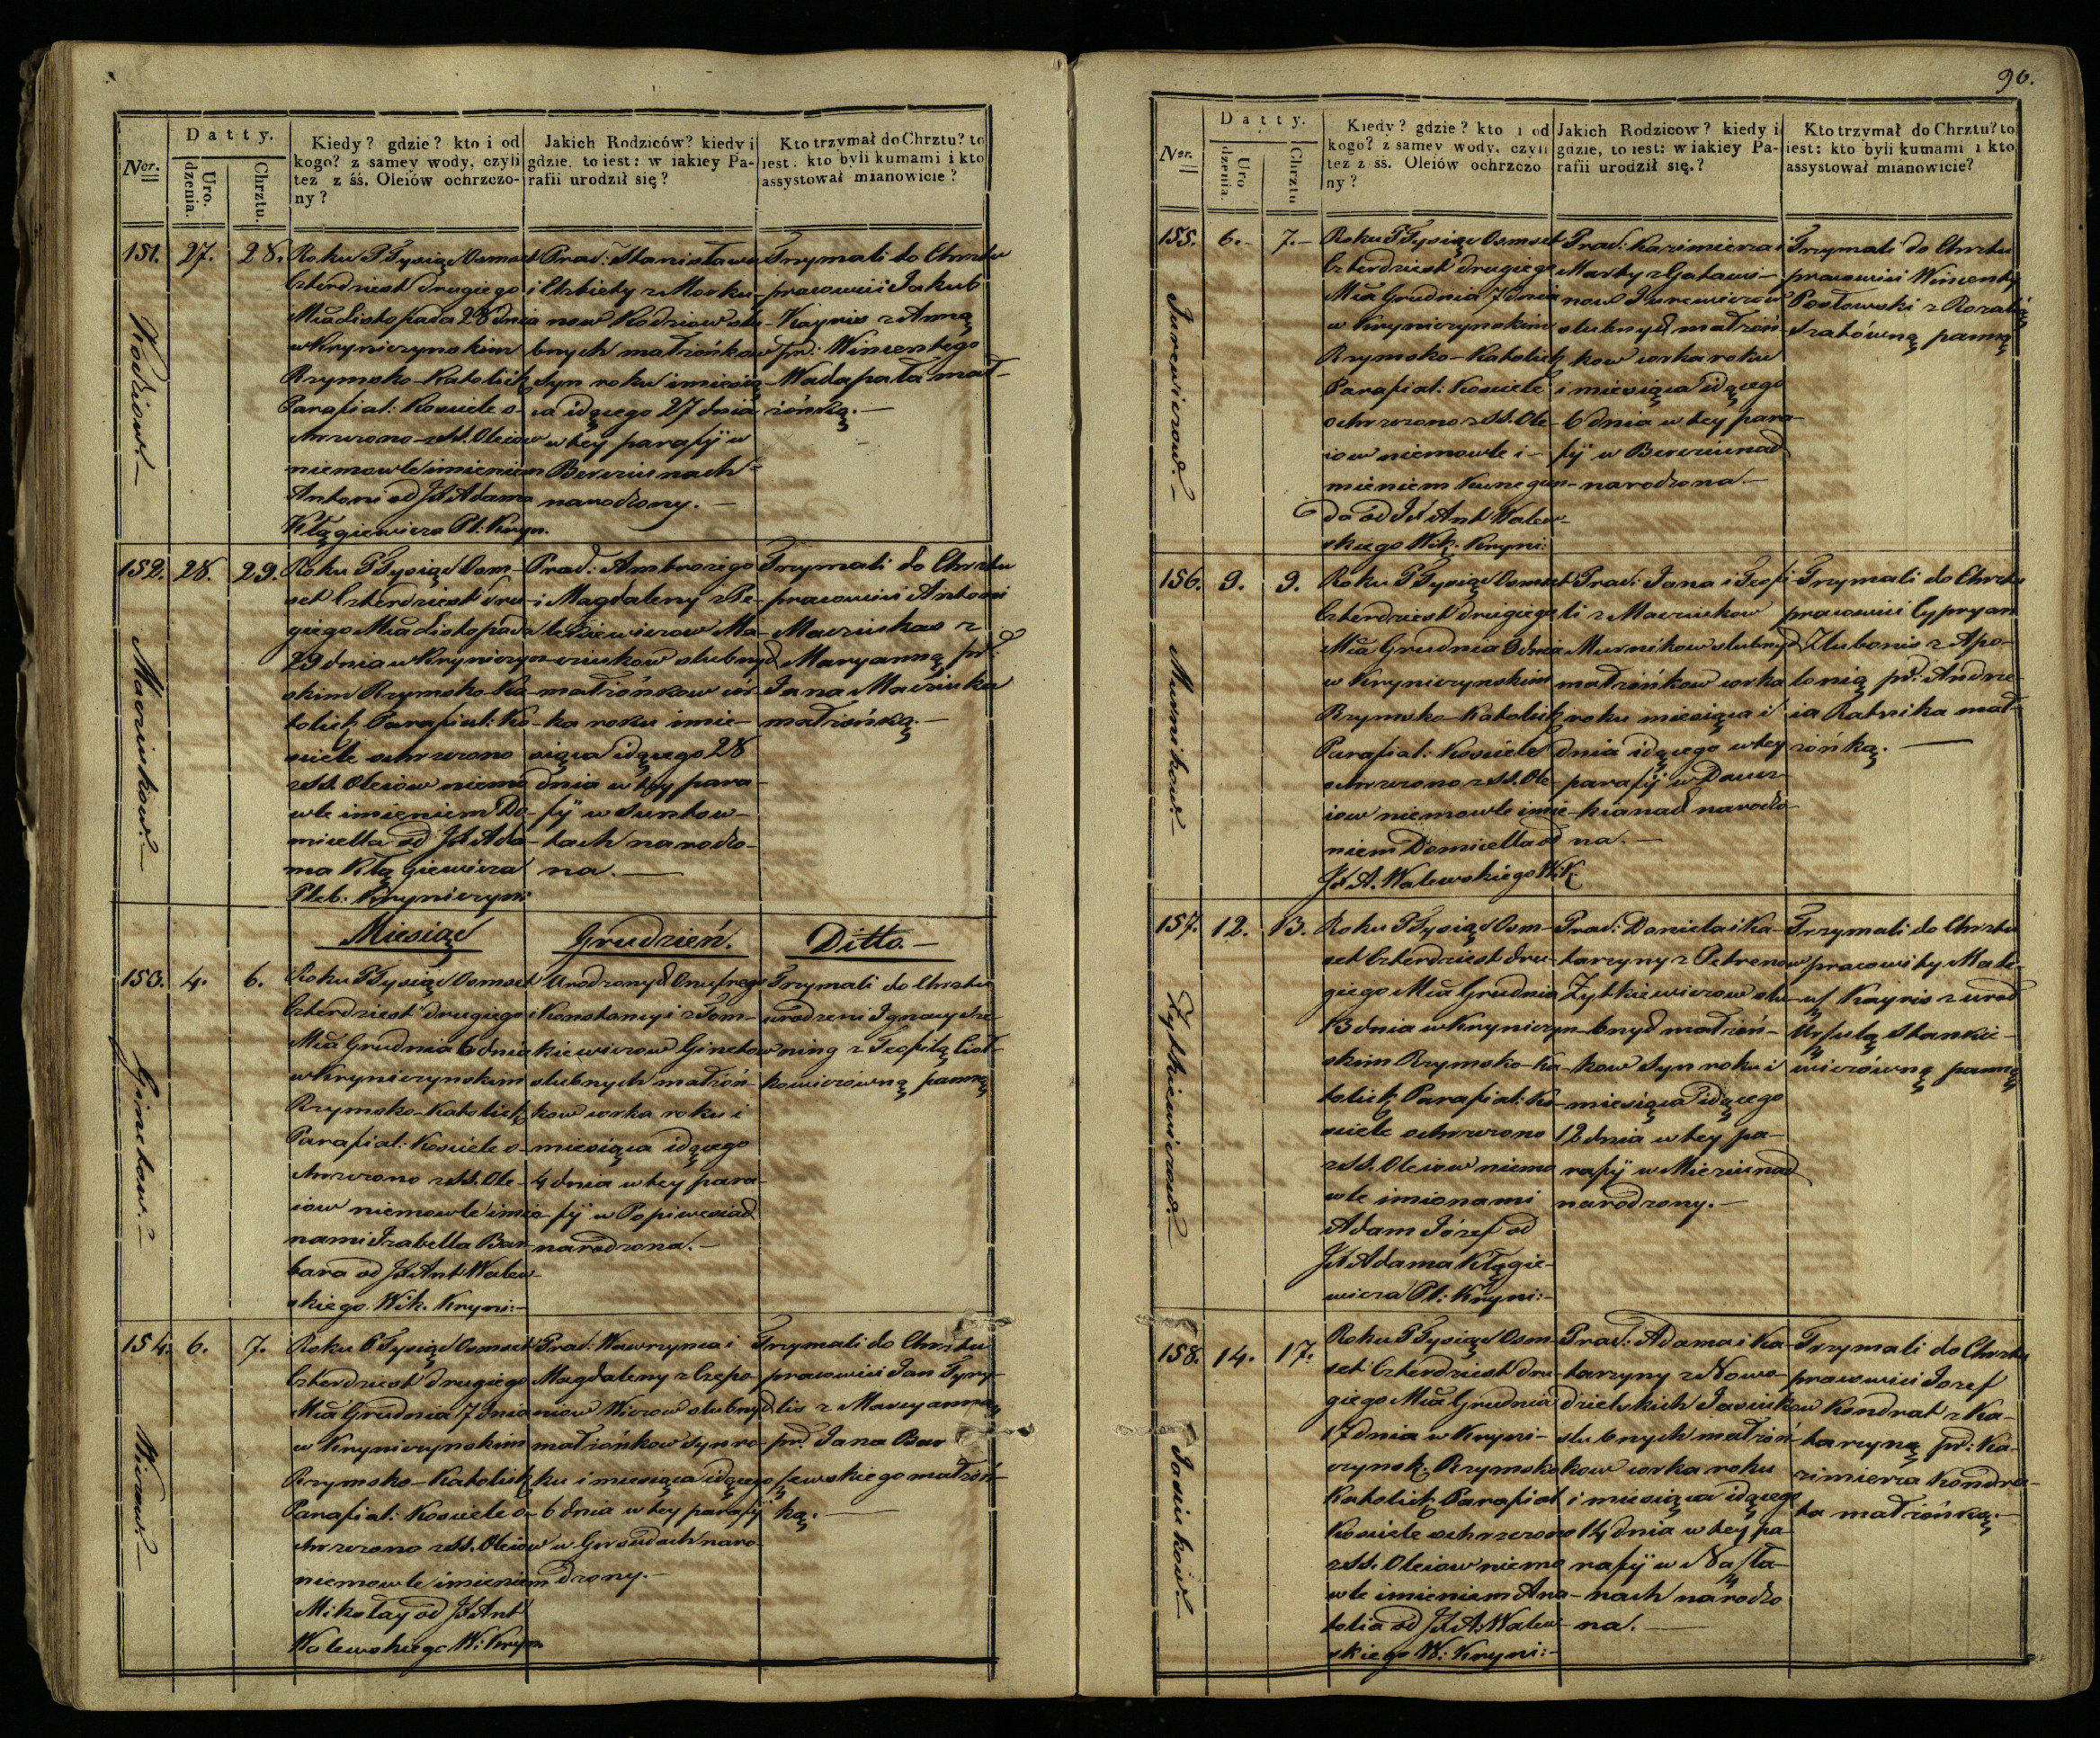 90.
Ner.
Datty.
Uro.
dzenia.
Chrztu.
Kiedy? gdzie? kto i od
kogo? z samey wody, czyli
tez z śś. Oleiów ochrzczo-
ny?
Jakich Rodziców? kiedy i
gdzie, to iest: w iakiey Pa-
rafii urodził się?
Kto trzymał do Chrztu? to
iest: kto byli kumami i kto
assystował mianowicie?
151.
27.
28.
Roku P Tysiąc Osmset
Czterdziest drugiego
Mca Listopada 28 dnia
w Kryniczynskim
Rzymsko-Katolick
Parafial: Kosciele o-
chrzczono z SS. Oleiow
niemowle imieniem
Antoni od JX Adama
Kłągiewicza Pl: Kryn.
Prac: Stanisława
i Elzbiety z Morku-
now Kodziow slu-
bnych małżońkow
Syn roku i miesią-
ca idącego 27 dnia
w tey parafij w
Berzciunach
narodzony.
Trzymali do Chrztu
pracowici Jakub
Kayris z Anną
pr: Wincentego
Wadapała mał-
żońką.
Kodziow.
152.
28.
29.
Roku P Tysiąc Osm-
set Czterdziest dru-
giego Mca Listopada
29 dnia w Kryniczyn-
skim Rzymsko-Ka-
tolick Parafial: Ko-
sciele ochrzczono
z SS. Oleiow niemo
wle imieniem Do-
micella od JX Ada-
ma Kłągiewicza
Pleb. Kryniczyn:
Prac: Ambrozego
i Magdaleny z Pe-
telkiewiczow Ma-
ciukow slubnych
małżońkow cór-
ka roku i mie-
siąca idącego 28
dnia w tey para-
fij w Surkow-
tach narodzo-
na.
Trzymali do Chrztu
pracowici Antoni
Maciukas z
Maryanną pr:
Jana Maciuka
małżońką.
Maciukow.
Miesiąc
Grudzień.
Ditto.
153.
4.
6.
Roku P Tysiąc Osmset
Czterdziest drugiego
Mca Grudnia 6 dnia
w Kryniczynskim
Rzymsko-Katolick
Parafial: Kosciele o-
chrzczono z SS. Ole-
iow niemowle imio-
nami Izabella Bar-
bara od JX Ant Walew-
skiego Wik. Kryni:
Urodzonych Onufrego
i Konstancyi z Tom-
kiewiczow Ginetow
slubnych małżoń-
kow corka roku i
miesiąca idącego
4 dnia w tey para-
fij w Popiwesiach
narodzona.
Trzymali do Chrztu
urodzeni Ignacy Je-
ning z Teofilą Ciot-
kowiczówną panną
Ginetow.
154.
6.
7.
Roku P Tysiąc Osmset
Czterdziest drugiego
Mca Grudnia 7 dnia
w Kryniczynskim
Rzymsko-Katolick
Parafial: Kosciele o-
chrzczono z SS. Oleiow
niemowle imieniem
Mikołay od JX Ant
Walewskiego W: Kryn
Prac: Wawrzynca i
Magdaleny z Czepo-
niow Wiczow slubnych
małżońkow Syn ro-
ku i miesiąca idącego
6 dnia w tey parafij
w Girsudach naro-
dzony.
Trzymali do Chrztu
pracowici Jan Tyry-
lis z Maryanną
pr: Jana Bar
szewskiego małżoń-
ką.
Wiczow.
Ner.
Datty.
Uro
dzenia.
Chrztu
Kiedy? gdzie? kto i od
kogo? z samey wody, czyli
tez z śś. Oleiów ochrzczo
ny?
Jakich Rodzicow? kiedy i
gdzie, to iest: w iakiey Pa-
rafii urodził się.?
Kto trzymał do Chrztu? to
iest: kto byli kumami i kto
assystował mianowicie?
155.
6.
7.
Roku P Tysiąc Osmset
Czterdziest drugiego
Mca Grudnia 7 dnia
w Kryniczynskim
Rzymsko-Katolick
Parafial: Kosciele
ochrzczono z SS. Ole-
iow niemowle i-
mieniem Kunegun-
da od JX Ant Walew-
skiego Wik. Kryni:
Prac: Kazimierza i
Marty z Gataws-
now Jurewiczow
slubnych małżoń-
kow corka roku
i miesiąca idącego
6 dnia w tey para-
fij w Berzciunach
narodzona.
Trzymali do Chrztu
pracowici Wincenty
Postowski z Rozalią
Szatówną panną
Jurewiczow.
156.
9.
9.
Roku P Tysiąc Osmset
Czterdziest drugiego
Mca Grudnia 9 dnia
w Kryniczynskim
Rzymsko-Katolick
Parafial: Kosciele
ochrzczono z SS. Ole-
iow niemowle imie-
niem Domicella od
JX A. Walewskiego W: K
Prac: Jana i Teofi
li z Maciukow
Murnikow slubnych
małżońkow corka
roku miesiąca i
dnia idącego w tey
parafij w Daucz-
kianach narodzo-
na.
Trzymali do Chrztu
pracowici Cypryan
Zlubonis z Apo-
lonią pr: Andrze-
ia Ratnika mał-
żońką.
Murnikow.
157.
12.
13.
Roku P Tysiąc Osm-
set Czterdziest dru-
giego Mca Grudnia
13 dnia w Kryniczyn-
skim Rzymsko-Ka-
tolick Parafial: Ko-
sciele ochrzczono
z SS. Oleiow niemo
wle imionami
Adam Józef od
JX Adama Kłągie-
wicza Pl: Kryni:
Prac: Daniela i Ka-
tarzyny z Petrenow
Zytkiewiczow slu-
bnych małżoń-
kow Syn roku i
miesiąca idącego
12 dnia w tey pa-
rafij w Miciunach
narodzony.
Trzymali do Chrztu
pracowity Mate-
usz Kayris z urod
Urszulą Stankie-
wiczówną panną
Zytkiewiczow.
158.
14.
17.
Roku P Tysiąc Osm
set Czterdziest dru-
giego Mca Grudnia
17 dnia w Kryni-
czynsk: Rzymsko
Katolick Parafial
Kosciele ochrzczono
z SS. Oleiow niemo
wle imieniem Ana-
tolia od JX A: Walew-
skiego W: Kryni:
Prac: Adama i Ka-
tarzyny z Nowo-
dzielskich Jasiukow
slubnych małżoń-
kow corka roku
i miesiąca idącego
14 dnia w tey pa
rafij w Naszla-
nach narodzo
na.
Trzymali do Chrztu
pracowici Jozef
Kondrat z Ka-
tarzyną pr: Ka-
zimierza Kondra-
ta małżońką.
Jasiukow.